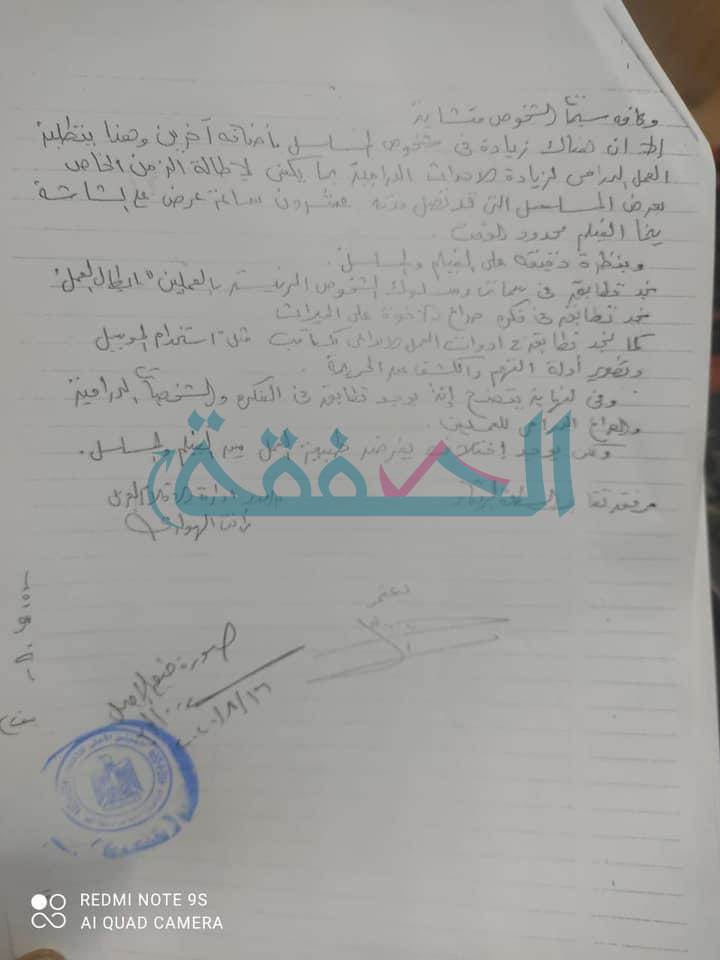 وكافه سمات الشخوص متشابة
إلا ان هناك زيادة فى شخوص المسلسل بأضافه آخرين وهنا يتطلب
العمل الدرامى لزيادة الاحداث الدرامية بما يكفى لإطالة الزمن الخاص
بعرض المسلسل التى قد تصل مدته عشرون ساعة عرض على الشاشة
بينما الفيلم محدود الوقت .
وبنظرة دقيقه على الفيلم والمسلسل .
نجد تطابق فى سمات وسلوك الشخوص الرئيسية بالعملين " ابطال العمل "
نجد تطابق فى فكره صراع الاخوة على الميراث
كما نجد تطابق فى ادوات العمل مثل استخدام الموبيل
وتطور أدلة الفهم والكشف عن الجريمة .
وفى النهاية يتضح إنه يوجد تطابق فى الفكره والشخصيات الدرامية
والصراع الدرامى للعملين .
يوجد إختلاف يفرضه طبيعة العمل بين الفيلم والمسلسل .
الصفقة
يعتمد
صورة طبق الاصل
٢٠٢٠/٨/١٦
REDMI NOTE 9S
AI QUAD CAMERA